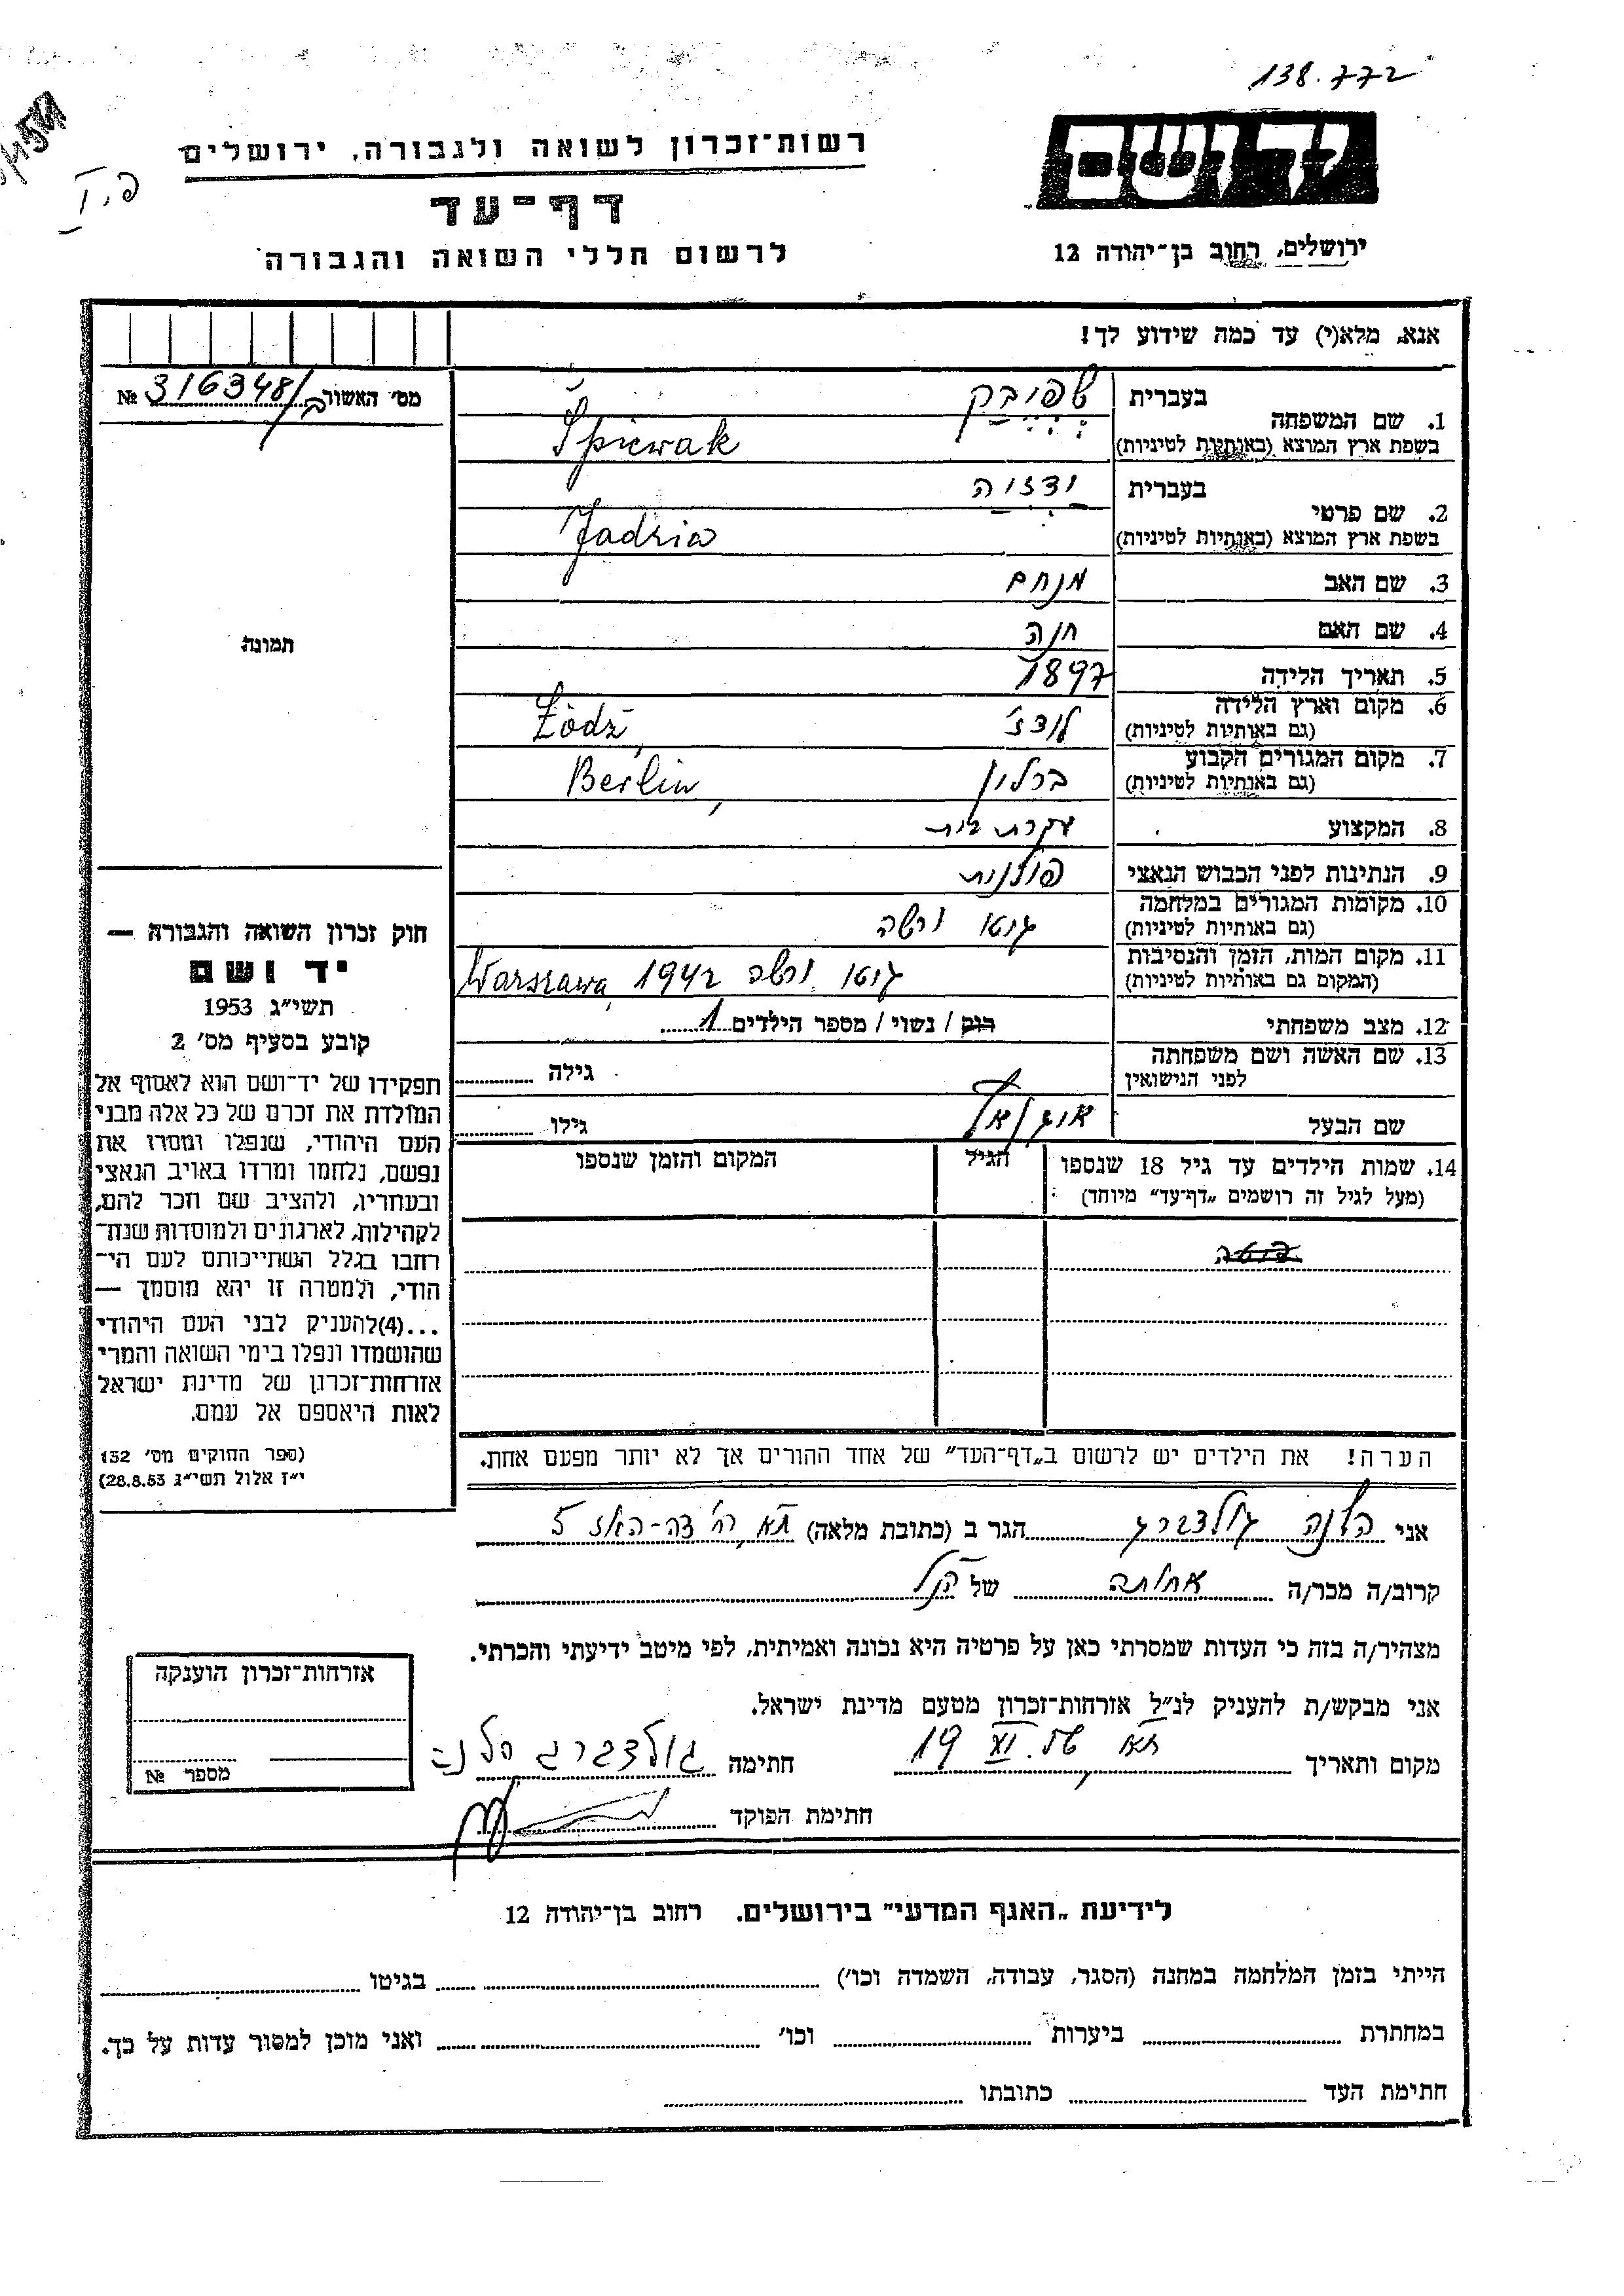 138.772
יד ושם
רשות־זכרון לשואה ולגבורה, ירושלים
דף־עד
ירושלים, רחוב בן־יהודה 12
לרשום חללי השואה והגבורה
אנא, מלא(י) עד כמה שידוע לך!
מס׳ האשור 316348/ב №
1. שם המשפחה בעברית שפיבק
בשפת ארץ המוצא (באותיות לטיניות) Śpiewak
2. שם פרטי בעברית ידזיה
בשפת ארץ המוצא (באותיות לטיניות) Jadzia
3. שם האב מנחם
4. שם האם חנה
5. תאריך הלידה 1897
6. מקום וארץ הלידה (גם באותיות לטיניות) לודז׳ Łódź,
7. מקום המגורים הקבוע (גם באותיות לטיניות) ברלין Berlin,
8. המקצוע עקרת בית
9. הנתינות לפני הכבוש הנאצי פולנית
10. מקומות המגורים במלחמה (גם באותיות לטיניות) גיטו ורשה
11. מקום המות, הזמן והנסיבות (המקום גם באותיות לטיניות) גיטו ורשה 1942 Warszawa,
12. מצב משפחתי רוק / נשוי / מספר הילדים 1
13. שם האשה ושם משפחתה לפני הנישואין גילה
שם הבעל גילו
14. שמות הילדים עד גיל 18 שנספו הגיל המקום והזמן שנספו
(מעל לגיל זה רושמים „דף־עד״ מיוחד)
הערה! את הילדים יש לרשום ב„דף־העד״ של אחד ההורים אך לא יותר מפעם אחת.
תמונה
חוק זכרון השואה והגבורה —
יד ושם
תשי״ג 1953
קובע בסעיף מס׳ 2
תפקידו של יד־ושם הוא לאסוף אל
המולדת את זכרם של כל אלה מבני
העם היהודי, שנפלו ומסרו את
נפשם, נלחמו ומרדו באויב הנאצי
ובעוזריו, ולהציב שם וזכר להם,
לקהילות, לארגונים ולמוסדות שנח־
רבו בגלל השתייכותם לעם הי־
הודי, ולמטרה זו יהא מוסמך —
...(4)להעניק לבני העם היהודי
שהושמדו ונפלו בימי השואה והמרי
אזרחות־זכרון של מדינת ישראל
לאות היאספם אל עמם.
(ספר החוקים מס׳ 132
י״ז אלול תשי״ג 28.8.53)
אני הלנה גולדברג הגר ב (כתובת מלאה) תא, רח׳ דה־האז 5
קרוב/ה מכר/ה אחותה של הנ״ל
מצהיר/ה בזה כי העדות שמסרתי כאן על פרטיה היא נכונה ואמיתית, לפי מיטב ידיעתי והכרתי.
אני מבקש/ת להעניק לנ״ל אזרחות־זכרון מטעם מדינת ישראל.
מקום ותאריך חתימה גולדברג הלנה
חתימת הפוקד
אזרחות־זכרון הוענקה
מספר №
לידיעת „האגף המדעי״ בירושלים. רחוב בן־יהודה 12
הייתי בזמן המלחמה במחנה (הסגר, עבודה, השמדה וכו׳) בגיטו
במחתרת ביערות וכו׳ ואני מוכן למסור עדות על כך.
חתימת העד כתובתו